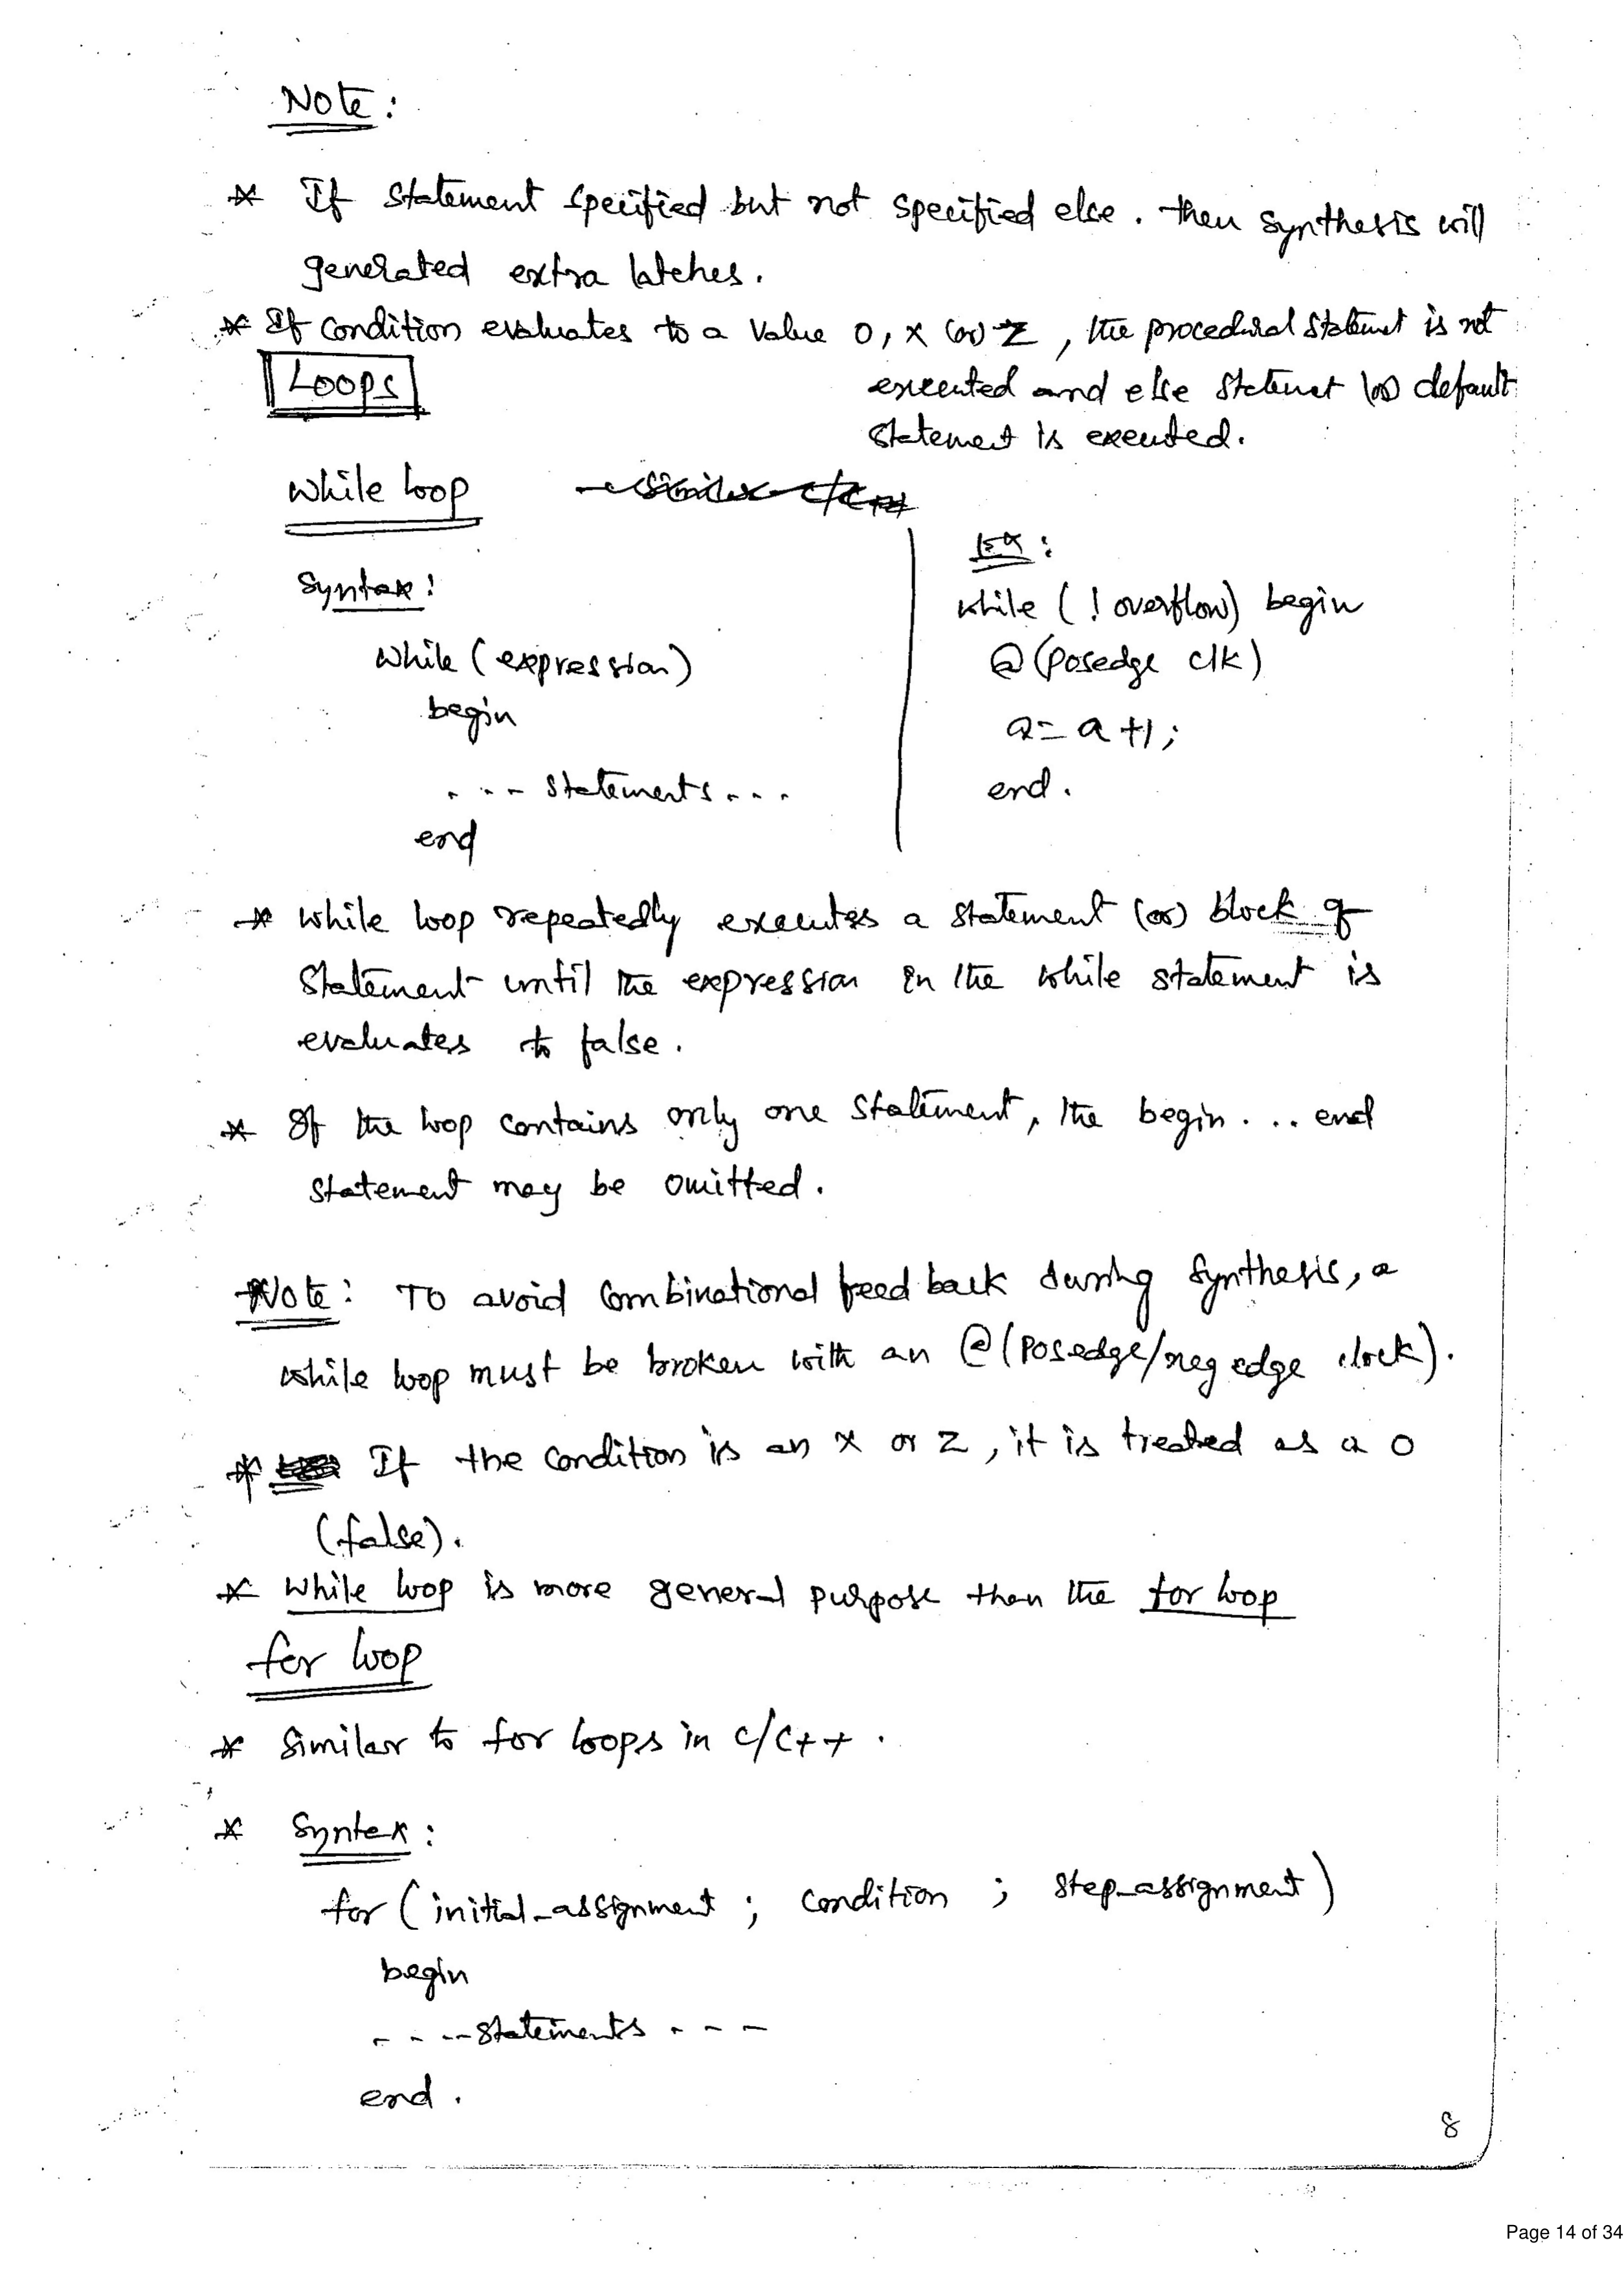 Note :
* If statement specified but not specified else . then synthesis will
generated extra latches.
* If condition evaluates to a value 0, x (or) z , the procedural statement is not
executed and else statement (or) default
statement is executed.
Loops
while loop
Syntax :
while (expression)
begin
. - - statements . - .
end
Ex :
while ( ! overflow) begin
@ (posedge clk)
a = a +1 ;
end .
* while loop repeatedly executes a statement (or) block of
statement until the expression in the while statement is
evaluates to false .
* If the loop contains only one statement, the begin . .. end
statement may be omitted .
*Note : To avoid combinational feed back during synthesis, a
while loop must be broken with an @ (posedge/neg edge clock).
* If the condition is an x or z, it is treated as a 0
(false).
* while loop is more general purpose then the for loop
for loop
* Similar to for loops in c/c++ .
* Syntex :
for (initial_assignment ; condition ; step_assignment)
begin
- - -- statements . - -
end .
8
Page 14 of 34